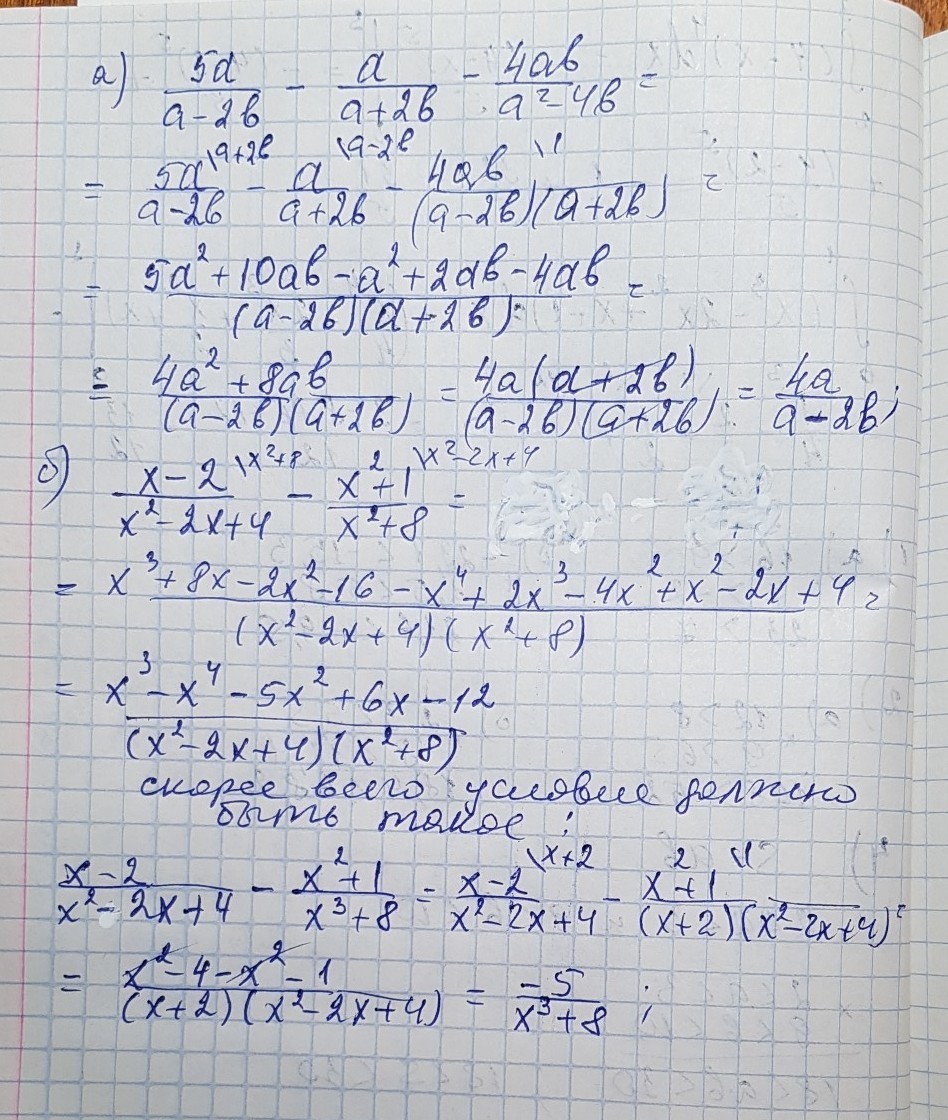 а) 5a/(a-2b) - a/(a+2b) - 4ab/(a²-4b) =
= 5a\a+2b/(a-2b) - a\a-2b/(a+2b) - 4ab\1/((a-2b)(a+2b)) =
= (5a²+10ab-a²+2ab-4ab)/((a-2b)(a+2b)) =
= (4a²+8ab)/((a-2b)(a+2b)) = 4a(a+2b)/((a-2b)(a+2b)) = 4a/(a-2b);
б) (x-2)\x²+8/(x²-2x+4) - (x²+1)\x²-2x+4/(x²+8) =
= (x³+8x-2x²-16-x⁴+2x³-4x²+x²-2x+4)/((x²-2x+4)(x²+8)) =
= (x³-x⁴-5x²+6x-12)/((x²-2x+4)(x²+8))
скорее всего условие должно
быть такое:
(x-2)/(x²-2x+4) - (x²+1)/(x³+8) = (x-2)\x+2/(x²-2x+4) - (x²+1)\1/((x+2)(x²-2x+4)) =
= (x²-4-x²-1)/((x+2)(x²-2x+4)) = -5/(x³+8);